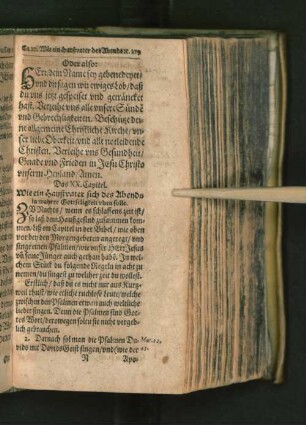 Oder also:
HErr/dein Name sey gebenedeyet
und dir sagen wir ewiges Lob/daß
du uns jetz gespeiset und geträncket
hast. Verzeihe uns alle unsere Sünde
und Gebrechligkeiten. Beschütze dei-
ne allgemeine Christliche Kirche/ un-
ser liebe Oberkeit/und alle nothleidende
Christen. Verleihe uns Gesundheit/
Gnade und Frieden in Jesu Christo
unserm Heyland/Amen.
Das XX. Capitel.
Wie ein Haußvater sich des Abends
in wahrer Gottseligkeit üben solle.
Nachts/ wenn es schlaffens zeit ist/
so laß dein Haußgesind zusammen kom-
men/ liß ein Capitel in der Bibel/ wie oben
vor bey den Morgengebeten angeregt/ und
singet einen Psalmen/wie unser HErr Jesus
und seine Jünger auch gethan habē. In wel-
chem Stück du folgende Regeln in acht zu
nemen/ da singest zu welcher zeit du wollest.
Erstlich/ daß du es nicht nur aus Kurz-
weil thust/ wie etliche ruchlose leute/ welche
zwischen den Psalmen etwan auch weltliche
lieder singen. Denn die Psalmen sind Got-
tes Wort/derowegen solt sie nicht vergeb-
lich gebrauchen.
2. Darnach sol man die Psalmen Da-
vids mit Davids Geist singen/und/wie der
R Apo-